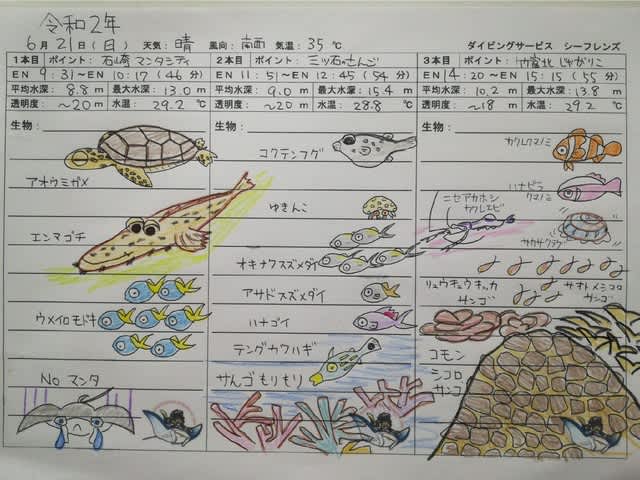 令和2年
6月21日(日) 天気: 晴 風向: 南西 気温: 35℃ ダイビングサービス シーフレンズ
1本目 ポイント: 石崎マンタシティ
EN 9:31~EN 10:17 (46分)
平均水深: 8.8m 最大水深: 13.0m
透明度: ~20m 水温: 29.2℃
生物:
アオウミガメ
エンマゴチ
ウメイロモドキ
No マンタ
2本目 ポイント: 三ツ石のさんご
EN 11:51~EN 12:45 (54分)
平均水深: 9.0m 最大水深: 15.4m
透明度: ~20m 水温: 28.8℃
生物:
コクテンフグ
ゆきんこ
オキナワスズメダイ
アサドスズメダイ
ハナゴイ
テングカワハギ
さんごもりもり
3本目 ポイント: 竹富北じゃがりこ
EN 14:20~EN 15:15 (55分)
平均水深: 10.2m 最大水深: 13.8m
透明度: ~18m 水温: 29.2℃
生物:
カクレクマノミ
ハナビラ
クマノミ
ニセアカホシ
カクレエビ
サカサクラゲ
リュウキュウキッカ
サンゴ
サオトメシコロ
サンゴ
コモン
シコロ
サンゴ